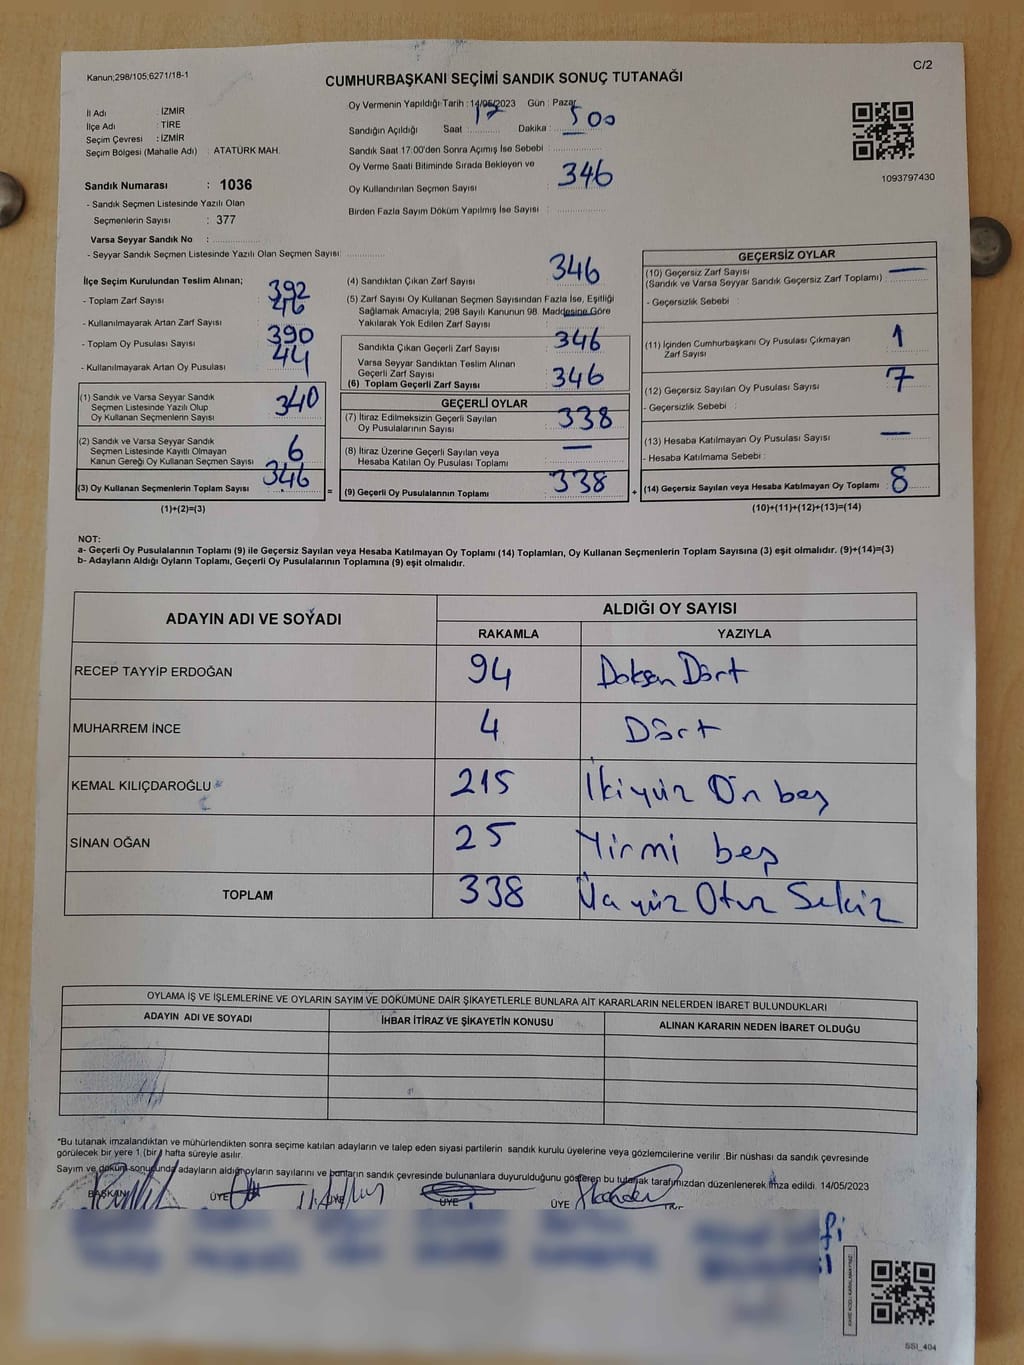 Kanun;298/105;6271/18-1
C/2
CUMHURBAŞKANI SEÇİMİ SANDIK SONUÇ TUTANAĞI
İl Adı : İZMİR
İlçe Adı : TİRE
Seçim Çevresi : İZMİR
Seçim Bölgesi (Mahalle Adı) : ATATÜRK MAH.
Sandık Numarası : 1036
- Sandık Seçmen Listesinde Yazılı Olan
Seçmenlerin Sayısı : 377
Varsa Seyyar Sandık No :
- Seyyar Sandık Seçmen Listesinde Yazılı Olan Seçmen Sayısı:
Oy Vermenin Yapıldığı Tarih : 14/05/2023 Gün : Pazar
Sandığın Açıldığı Saat : 17 Dakika : 00
Sandık Saat 17:00'den Sonra Açımış İse Sebebi :
Oy Verme Saati Bitiminde Sırada Bekleyen ve
Oy Kullandırılan Seçmen Sayısı : 346
Birden Fazla Sayım Döküm Yapılmış İse Sayısı :
1093797430
İlçe Seçim Kurulundan Teslim Alınan;
- Toplam Zarf Sayısı : 392
- Kullanılmayarak Artan Zarf Sayısı : 46
- Toplam Oy Pusulası Sayısı : 390
- Kullanılmayarak Artan Oy Pusulası : 44
(1) Sandık ve Varsa Seyyar Sandık
Seçmen Listesinde Yazılı Olup
Oy Kullanan Seçmenlerin Sayısı : 340
(2) Sandık ve Varsa Seyyar Sandık
Seçmen Listesinde Kayıtlı Olmayan
Kanun Gereği Oy Kullanan Seçmen Sayısı : 6
(3) Oy Kullanan Seçmenlerin Toplam Sayısı : 346
(1)+(2)=(3)
(4) Sandıktan Çıkan Zarf Sayısı : 346
(5) Zarf Sayısı Oy Kullanan Seçmen Sayısından Fazla İse, Eşitliği
Sağlamak Amacıyla; 298 Sayılı Kanunun 98. Maddesine Göre
Yakılarak Yok Edilen Zarf Sayısı : —
Sandıkta Çıkan Geçerli Zarf Sayısı : 346
Varsa Seyyar Sandıktan Teslim Alınan
Geçerli Zarf Sayısı :
(6) Toplam Geçerli Zarf Sayısı : 346
GEÇERLİ OYLAR
(7) İtiraz Edilmeksizin Geçerli Sayılan
Oy Pusulalarının Sayısı : 338
(8) İtiraz Üzerine Geçerli Sayılan veya
Hesaba Katılan Oy Pusulası Toplamı : —
= (9) Geçerli Oy Pusulalarının Toplamı : 338
GEÇERSİZ OYLAR
(10) Geçersiz Zarf Sayısı
(Sandık ve Varsa Seyyar Sandık Geçersiz Zarf Toplamı) : —
- Geçersizlik Sebebi :
(11) İçinden Cumhurbaşkanı Oy Pusulası Çıkmayan
Zarf Sayısı : 1
(12) Geçersiz Sayılan Oy Pusulası Sayısı : 7
- Geçersizlik Sebebi :
(13) Hesaba Katılmayan Oy Pusulası Sayısı : —
- Hesaba Katılmama Sebebi :
+ (14) Geçersiz Sayılan veya Hesaba Katılmayan Oy Toplamı : 8
(10)+(11)+(12)+(13)=(14)
NOT:
a- Geçerli Oy Pusulalarının Toplamı (9) ile Geçersiz Sayılan veya Hesaba Katılmayan Oy Toplamı (14) Toplamları, Oy Kullanan Seçmenlerin Toplam Sayısına (3) eşit olmalıdır. (9)+(14)=(3)
b- Adayların Aldığı Oyların Toplamı, Geçerli Oy Pusulalarının Toplamına (9) eşit olmalıdır.
ADAYIN ADI VE SOYADI ALDIĞI OY SAYISI
RAKAMLA YAZIYLA
RECEP TAYYİP ERDOĞAN 94 Doksan Dört
MUHARREM İNCE 4 Dört
KEMAL KILIÇDAROĞLU 215 İkiyüz On beş
SİNAN OĞAN 25 Yirmi beş
TOPLAM 338 Üç yüz Otuz Sekiz
OYLAMA İŞ VE İŞLEMLERİNE VE OYLARIN SAYIM VE DÖKÜMÜNE DAİR ŞİKAYETLERLE BUNLARA AİT KARARLARIN NELERDEN İBARET BULUNDUKLARI
ADAYIN ADI VE SOYADI İHBAR İTİRAZ VE ŞİKAYETİN KONUSU ALINAN KARARIN NEDEN İBARET OLDUĞU
*Bu tutanak imzalandıktan ve mühürlendikten sonra seçime katılan adayların ve talep eden siyasi partilerin sandık kurulu üyelerine veya gözlemcilerine verilir .Bir nüshası da sandık çevresinde
görülecek bir yere 1 (bir) hafta süreyle asılır.
Sayım ve döküm sonucunda adayların aldığı oyların sayılarını ve bunların sandık çevresinde bulunanlara duyurulduğunu gösteren bu tutanak tarafımızdan düzenlenerek imza edildi. 14/05/2023
BAŞKAN ÜYE ÜYE ÜYE ÜYE
SSI_404